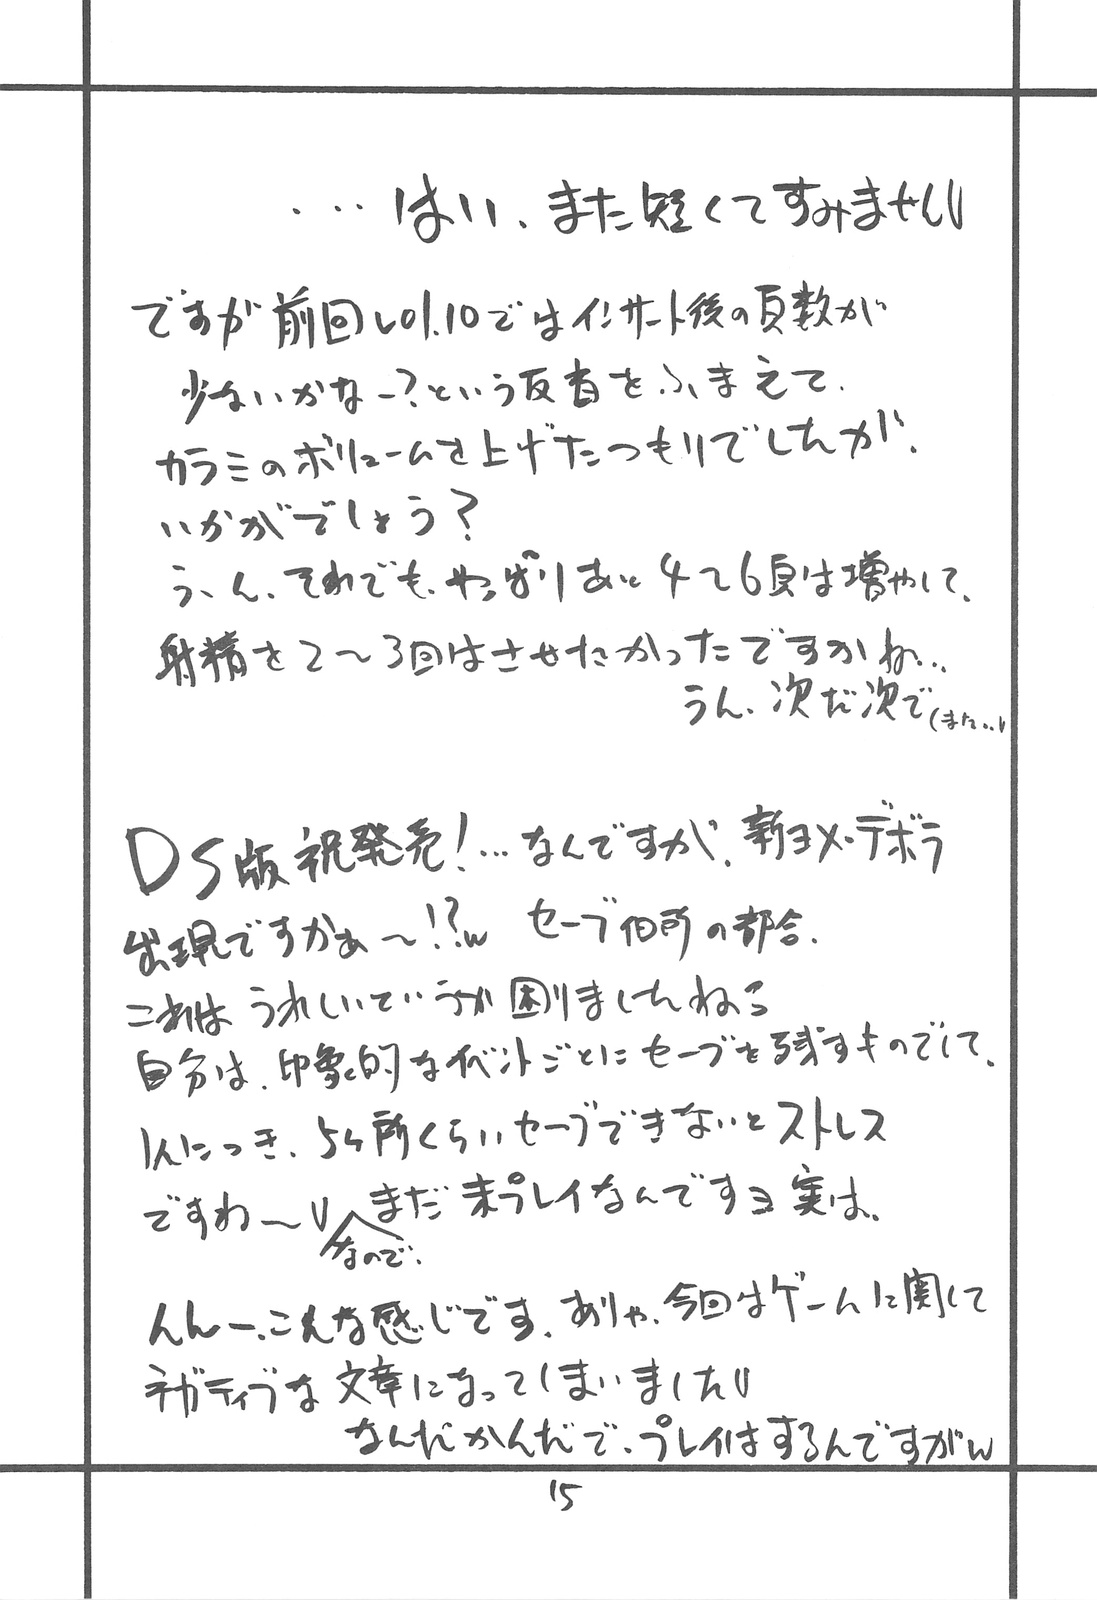 ...はい、また短くてすみません
ですが前回vol.10ではインサート後の頁数が
少ないかなー?という反省をふまえて、
カラミのボリュームを上げたつもりでしたが、
いかがでしょう?
う、ん、それでも、やっぱりあと4〜6頁は増やして、
射精を2〜3回はさせたかったですかね...
うん、次だ次で(また..
DS版祝発売!...なんですが、新ヨメ・デボラ
出現ですかぁ〜!?w セーブ個所の都合、
これは うれしいていうか困りましたねぇ
自分は、印象的なイベントごとにセーブを残すものでして、
1人につき、5ヶ所くらいセーブできないとストレス
ですわ〜 なので、まだ未プレイなんですヨ実は。
んんー、こんな感じです、ありゃ、今回はゲームに関して
ネガティブな文章になってしまいました
なんだかんだで、プレイはするんですがw
15